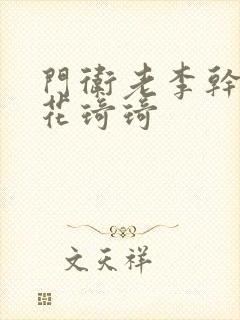 門衛老李幹
花琦琦
文天祥